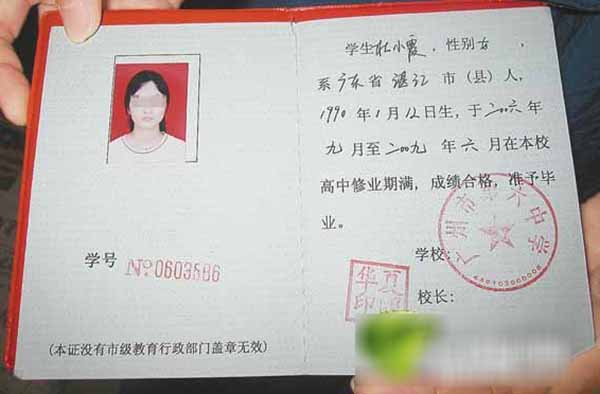 学号 №0603586
(本证没有市级教育行政部门盖章无效)
学生杜小霞,性别女,
系广东省湛江市(县)人,
1990年1月12日生,于二00六年
九月至二00九年六月在本校
高中修业期满,成绩合格,准予毕
业。
学校:
广州市第六中学
校长:
华夏
印